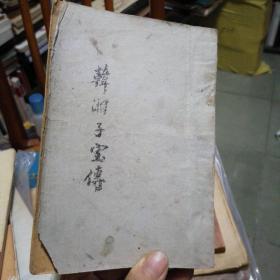 韓湘子宝傳